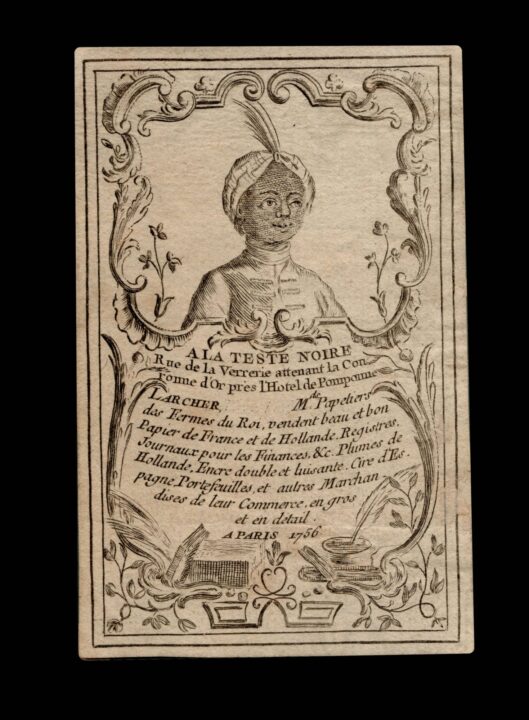 A LA TESTE NOIRE
Rue de la Verrerie attenant la Cou
ronne d'Or près l'Hotel de Pomponne
LARCHER, M.de Papetiers
des Fermes du Roi, vendent beau et bon
Papier de France et de Hollande, Registres,
Journaux pour les Finances, &c. Plumes de
Hollande, Encre double et luisante. Cire d'Es-
pagne, Portefeuilles, et autres Marchan
dises de leur Commerce, en gros
et en détail.
A PARIS 1756